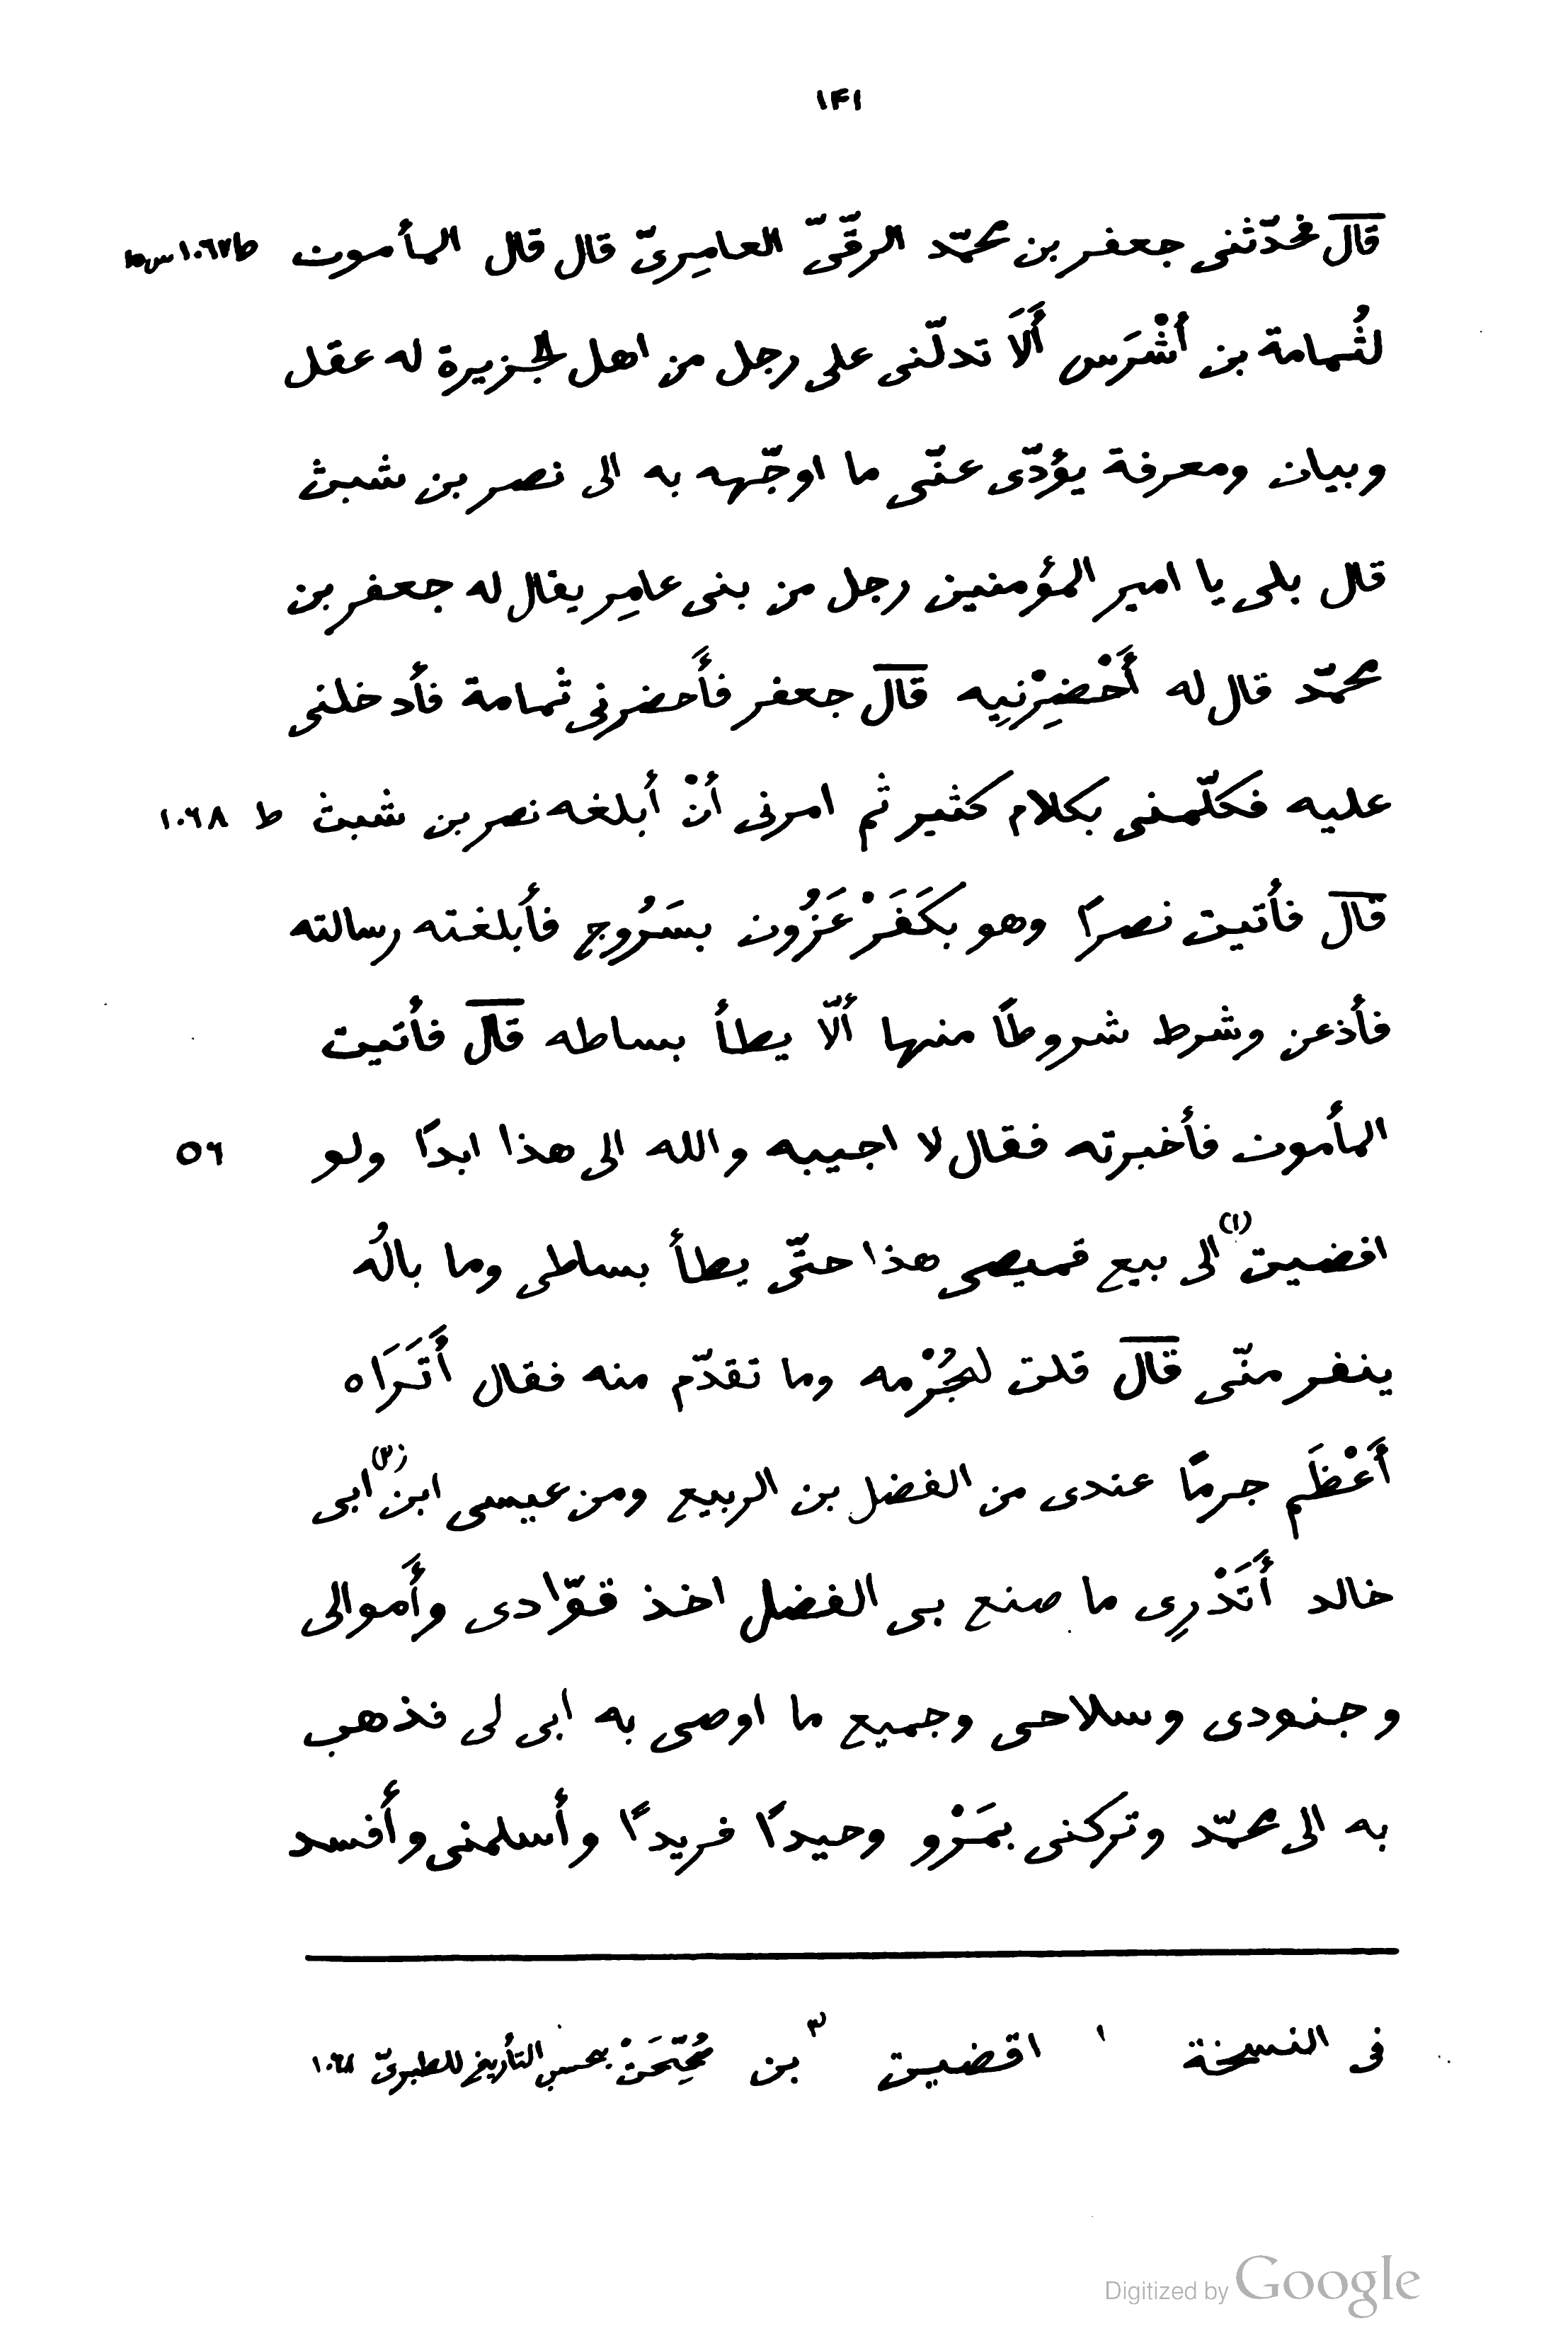 ١٤١
قال فحدّثنى جعفر بن محمّد الرقّىّ العامِرىّ قال قال المأمون ط ١٠٦٧ س ١٥
لثُمامة بن أَشْرَس أَلَا تدلّنى على رجل من اهل الجزيرة له عقل
وبيان ومعرفة يؤدّى عنّى ما اوجّهه به الى نصر بن شبث
قال بلى يا امير المؤمنين رجل من بنى عامِر يقال له جعفر بن
محمّد قال له أَحْضِرْنِيه قال جعفر فأَحضرنى ثمامة فأدخلنى
عليه فكلّمنى بكلام كثير ثم امرنى أنْ أبلغه نصر بن شبث ط ١٠٦٨
قال فأتيت نصرًا وهو بكَفَرْ عَزُون بسَرُوج فأبلغته رسالته
فأذعن وشرط شروطًا منها ألّا يطأ بساطه قال فأتيت
المأمون فأخبرته فقال لا اجيبه والله الى هذا ابدًا ولو ٥٦
افضيت(١) الى بيع قميصى هذا حتّى يطأ بساطى وما بالُه
ينفر منّى قال قلت لجُرْمه وما تقدّم منه فقال أَتَرَاه
أَعْظَم جرمًا عندى من الفضل بن الربيع ومن عيسى ابن(٢) ابى
خالد أَتَدْرِى ما صنع بى الفضل اخذ قوّادى وأَموالى
وجنودى وسلاحى وجميع ما اوصى به ابى لى فذهب
به الى محمّد وتركنى بمَرْو وحيدًا فريدًا وأسلمنى وأَفسد
فى النسخة ١ اقضيت ٢ بن مُحِّحَتْ بحسب التأريخ للطبرىّ ١٠٦٨
Digitized by Google